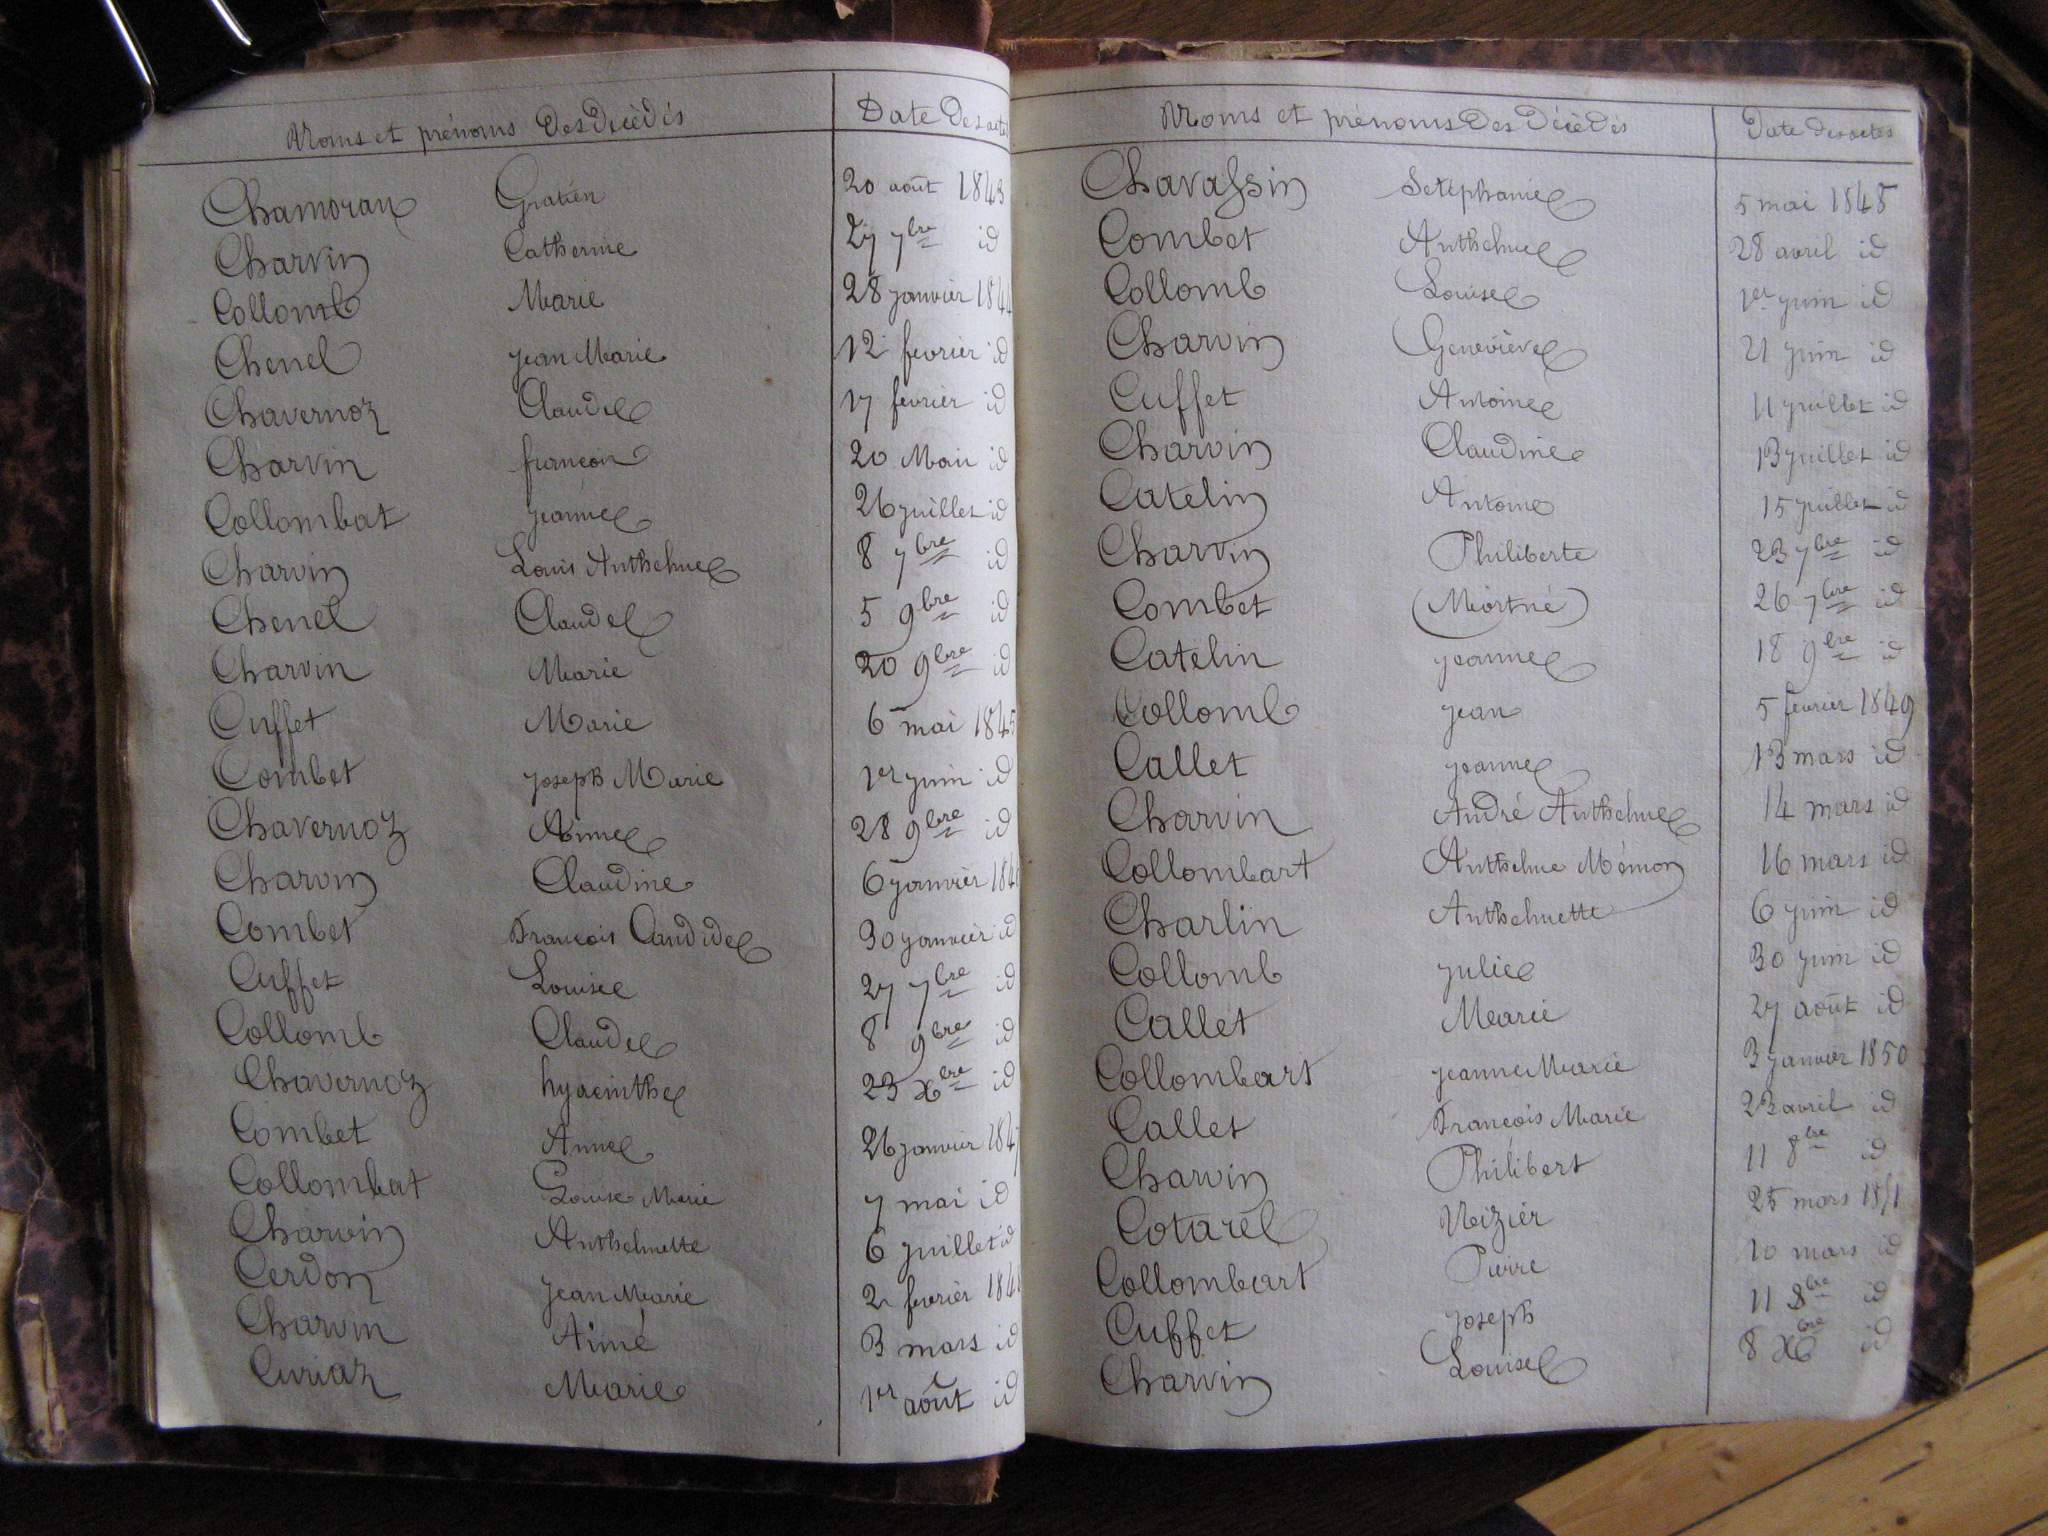 Noms et prénoms Des Décédés Date Des actes
Chamoran Gratien 20 août 1843
Charvin Catherine 27 7bre id
Collomb Marie 28 janvier 184
Chenel jean Marie 12 fevrier id
Chavernoz Claude 17 fevrier id
Charvin françois 20 Mai id
Collombat jeanne 26 juillet id
Charvin Louis Anthelme 8 7bre id
Chenel Claude 5 9bre id
Charvin Marie 20 9bre id
Cuffet Marie 6 mai 1845
Combet joseph Marie 1er juin id
Chavernoz Anne 28 9bre id
Charvin Claudine 6 janvier 184
Combet François Candide 30 janvier id
Cuffet Louise 27 7bre id
Collomb Claude 8 9bre id
Chavernoz hyacinthe 23 Xbre id
Combet Anne 26 janvier 1847
Collombat Louise Marie 7 mai id
Charvin Anthelmette 6 juillet id
Cerdon jean Marie 2 fevrier 184
Charvin Aimé 3 mars id
Curiaz Marie 1er août id
Noms et prénoms Des Décédés Date des actes
Chavassin Stéphanie 5 mai 1848
Combet Anthelme 28 avril id
Collomb Louise 1er juin id
Charvin Geneviève 21 juin id
Cuffet Antoine 11 juillet id
Charvin Claudine 13 juillet id
Catelin Antoine 15 juillet id
Charvin Philiberte 23 7bre id
Combet (Mortné) 26 7bre id
Catelin jeanne 18 9bre id
Collomb jean 5 fevrier 1849
Callet jeanne 13 mars id
Charvin André Anthelme 14 mars id
Collombart Anthelme Mémon 16 mars id
Charlin Anthelmette 6 juin id
Collomb julie 30 juin id
Callet Marie 27 août id
Collombart jeanne Marie 3 janvier 1850
Callet François Marie 23 avril id
Charvin Philibert 11 8bre id
Cotarel Vézier 25 mars 1851
Collombart Pierre 10 mars id
Cuffet joseph 11 8bre id
Charvin Louise 8 Xbre id